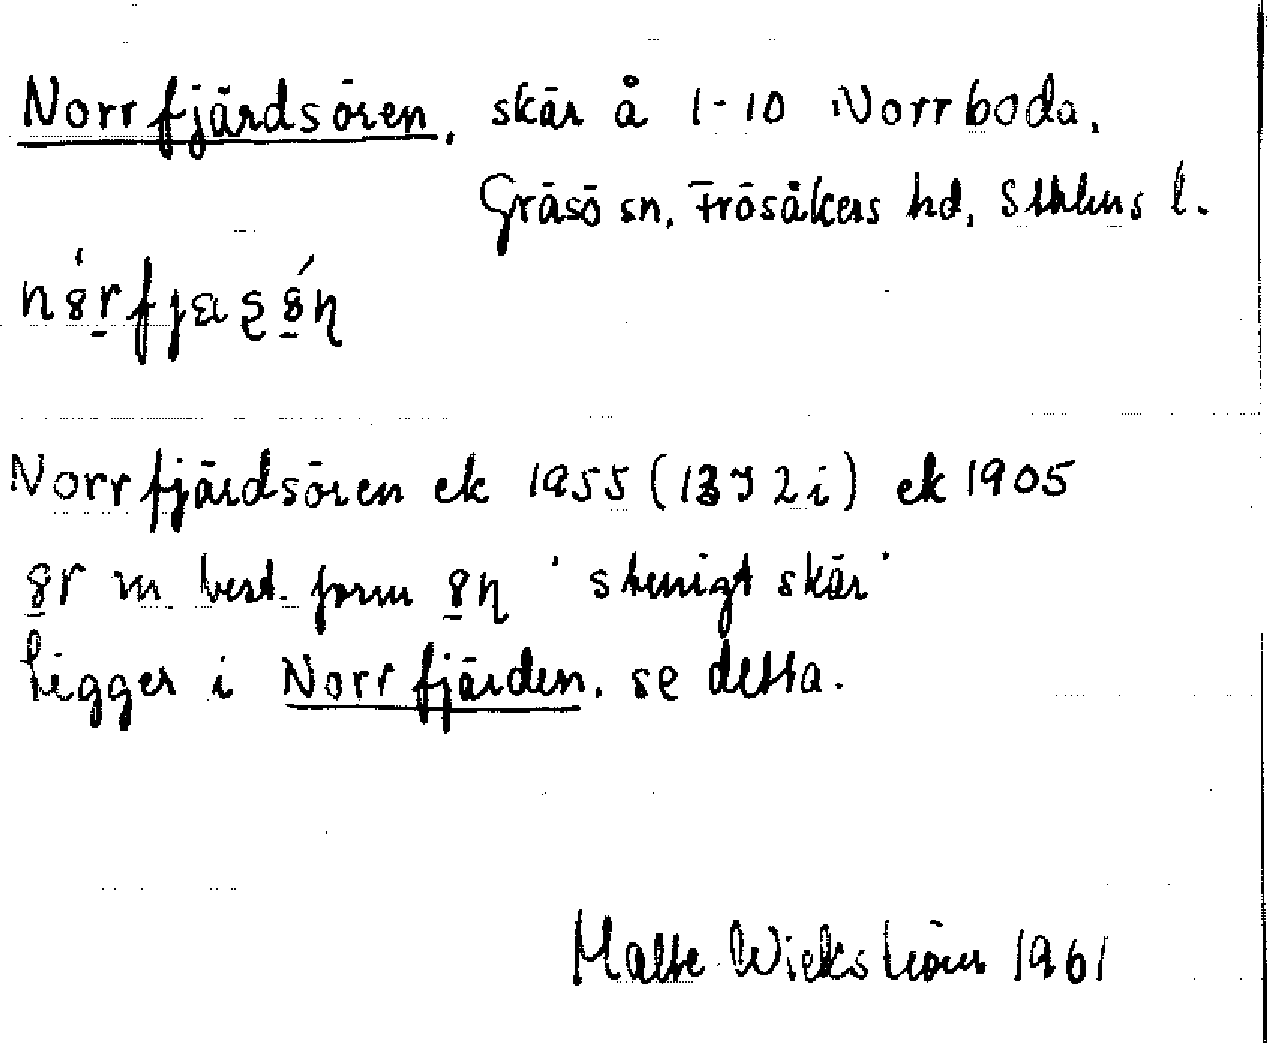 Norrfjärdsören, skär å 1-10 Norrboda,
Gräsö sn, Frösåkers hd, Sthlms l.
Norrfjärdsören ek 1955 (13 I 2 i) ek 1905
m. best. form ' stenigt skär '
Ligger i Norrfjärden, se detta.
Malte Wickström 1961